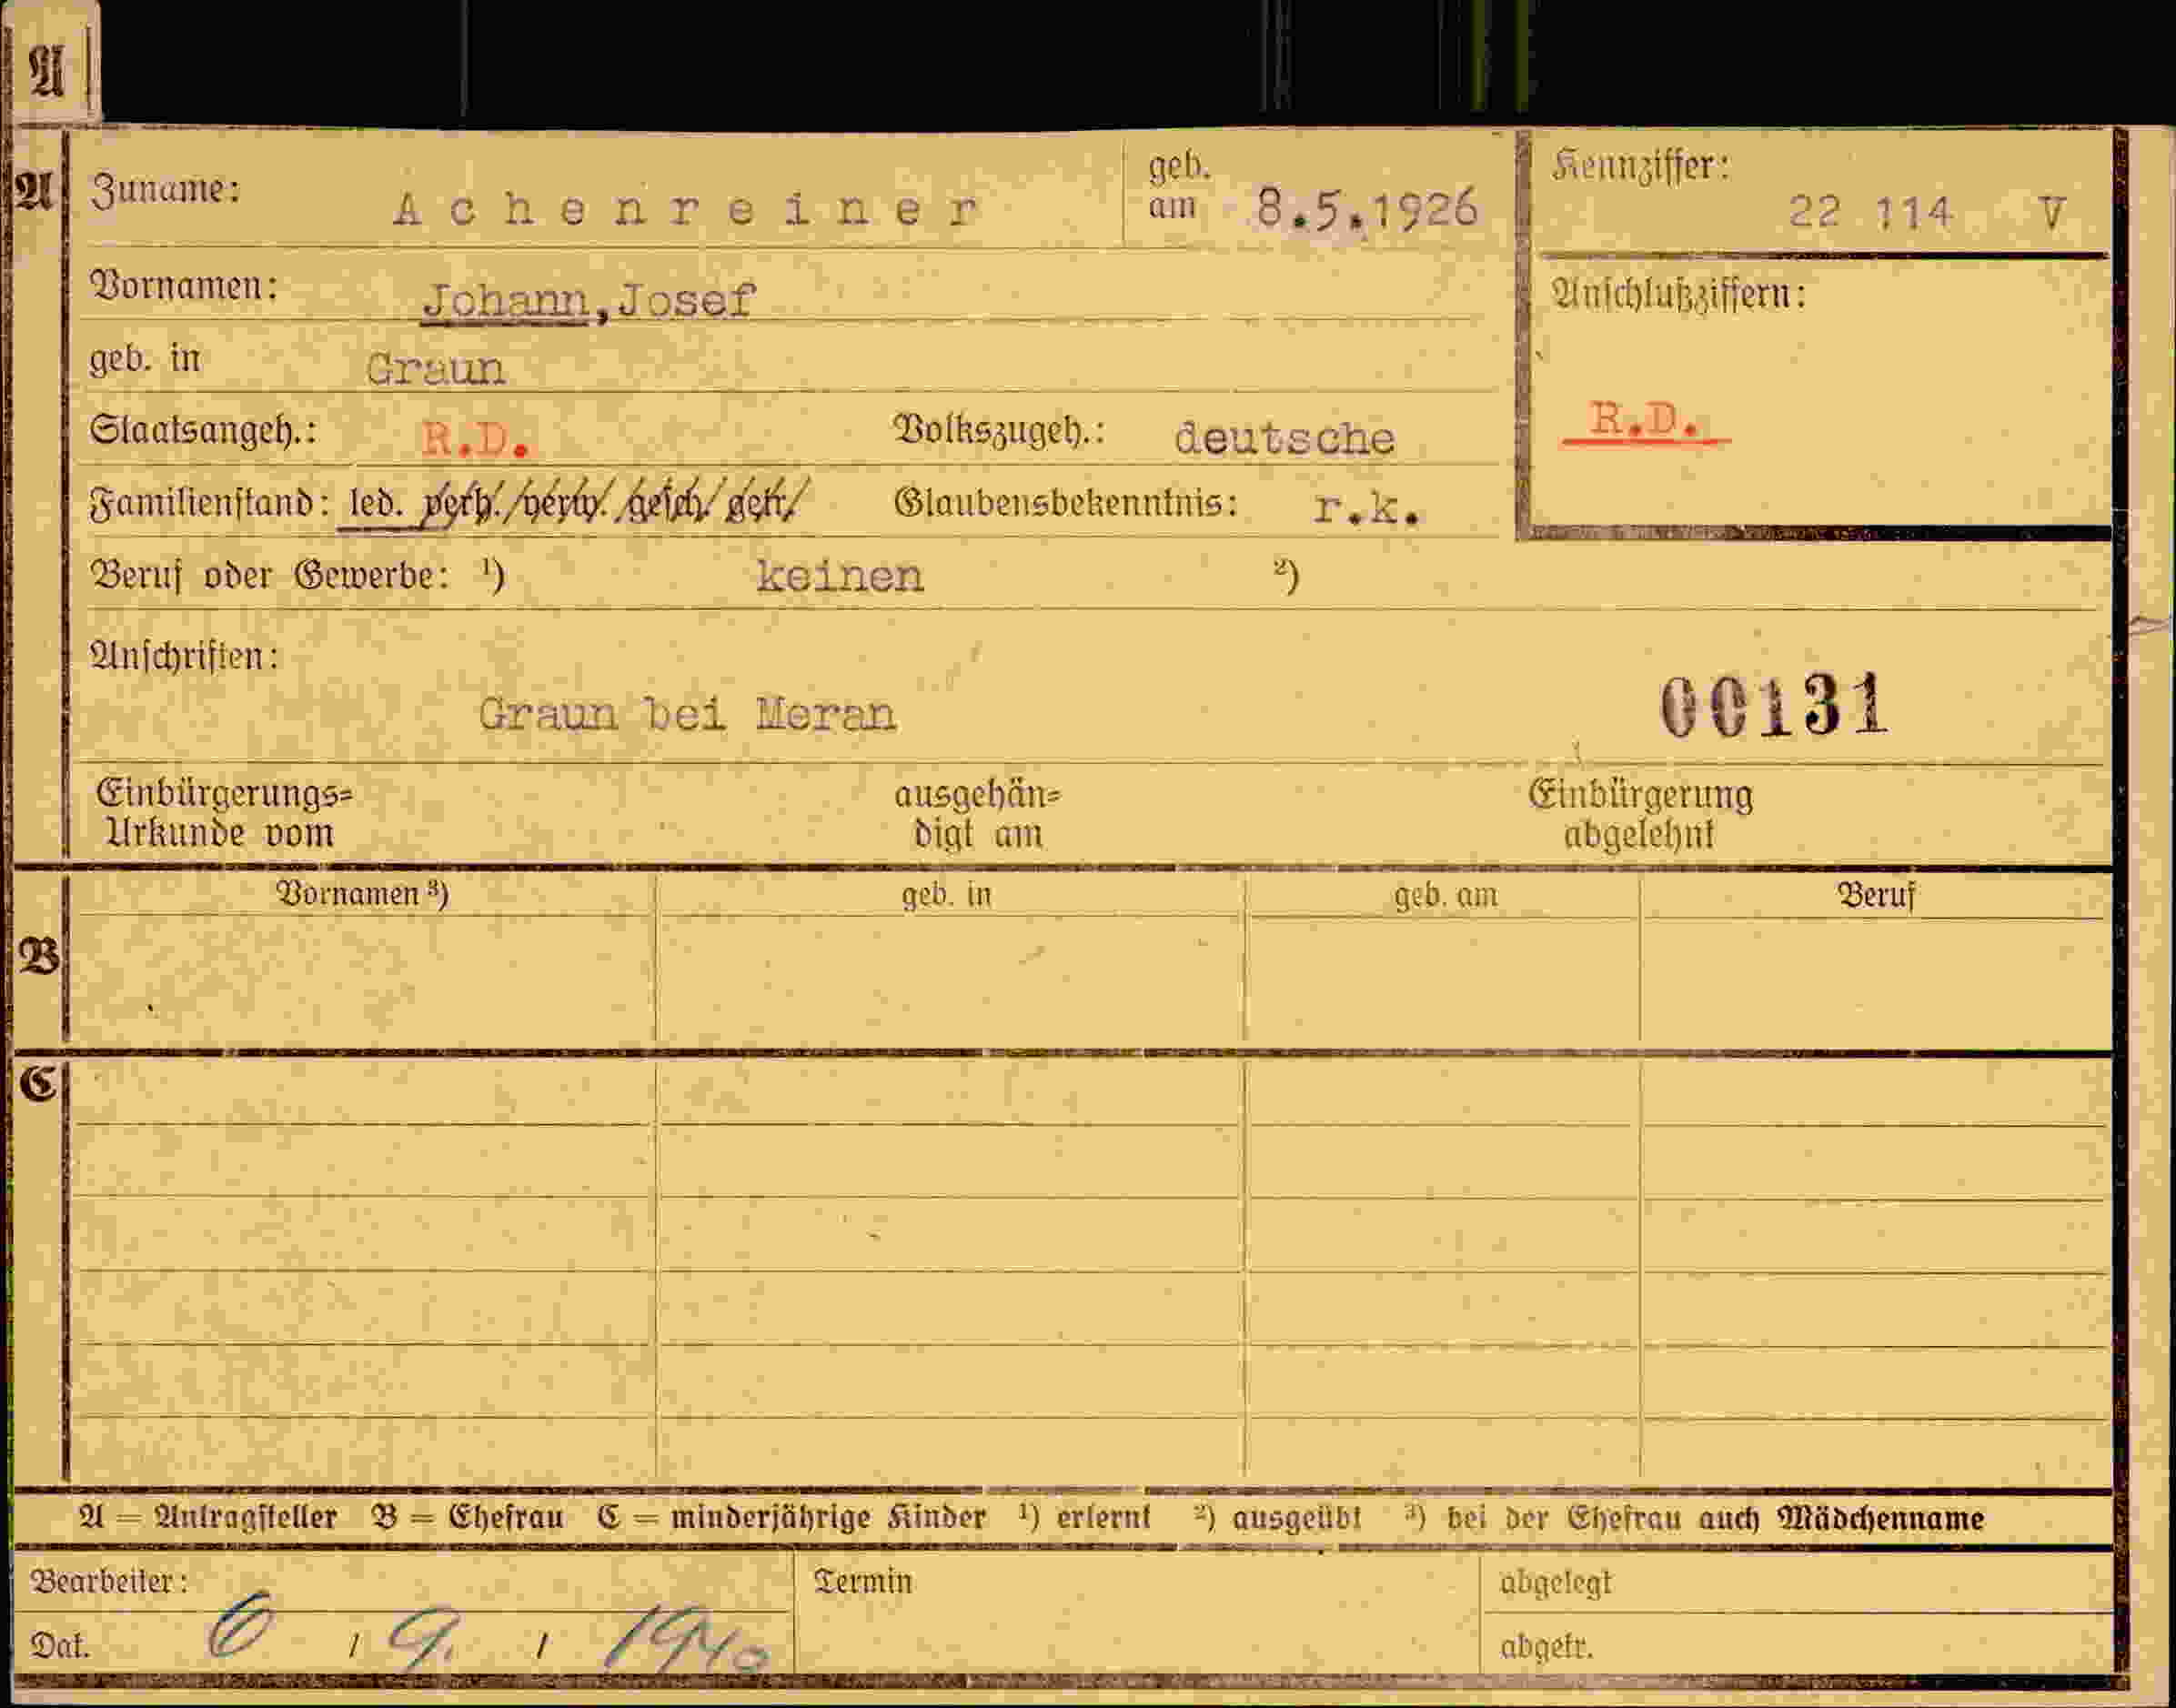 A
A Zuname: Achenreiner geb. am 8.5.1926 Kennziffer: 22 114 V
Vornamen: Johann,Josef Anschlußziffern:
geb. in Graun
Staatsangeh.: R.D. Volkszugeh.: deutsche R.D.
Familienstand: led. verh./verw./gesch/getr/ Glaubensbekenntnis: r.k.
Beruf oder Gewerbe: ¹) keinen ²)
Anschriften:
Graun bei Meran 00131
Einbürgerungs= ausgehän= Einbürgerung
Urkunde vom digt am abgelehnt
Vornamen ³) geb. in geb. am Beruf
B
C
A = Antragsteller B = Ehefrau C = minderjährige Kinder ¹) erlernt ²) ausgeübt ³) bei der Ehefrau auch Mädchenname
Bearbeiter: Termin abgelegt
Dat. 6 / 9. / 1940 abgetr.